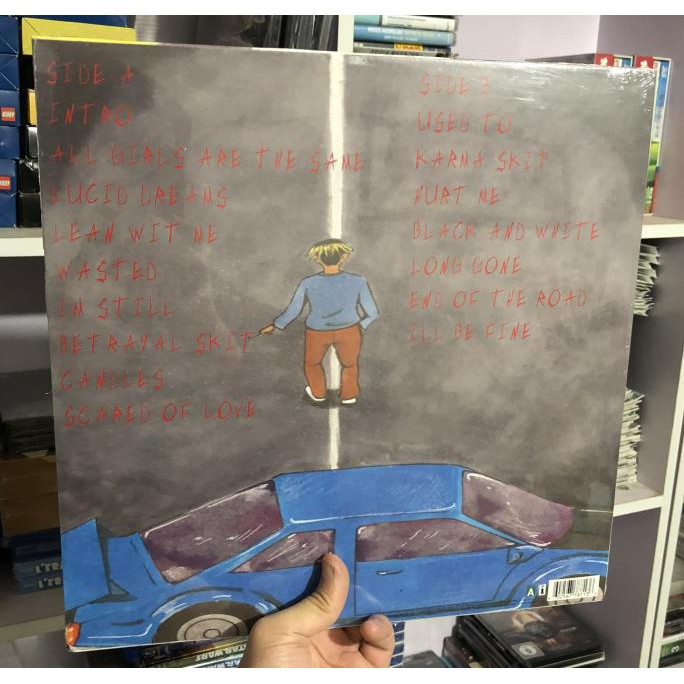 SIDE A
INTRO
ALL GIRLS ARE THE SAME
LUCID DREAMS
LEAN WIT ME
WASTED
IM STILL
BETRAYAL SKIT
CANDLES
SCARED OF LOVE
SIDE B
USED TO
KARMA SKIT
HURT ME
BLACK AND WHITE
LONG GONE
END OF THE ROAD
ILL BE FINE
A i
LEGO
STAR WARS